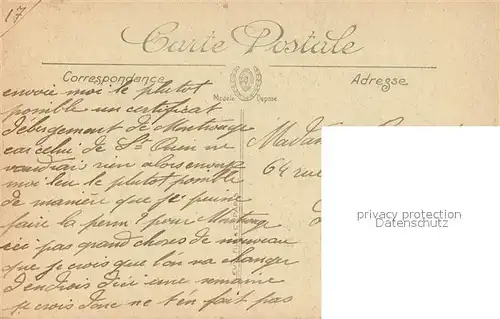 17
Carte Postale
Correspondance
Adresse
Modèle Déposé
envoie moi le plutot
posible un certificat
débergement de Montrouge
car celui de St Ouen ne
vaudrais rien alors envoie
moi leu le plutot posible
de manière que je puise
faire la perm? pour Montroug
ici pas grand choses de nouveau
que je crois que l'on va changer
d'endrois d'ici une semaine
je crois donc ne t'en fait pas
Madame
64 rue
privacy protection
Datenschutz